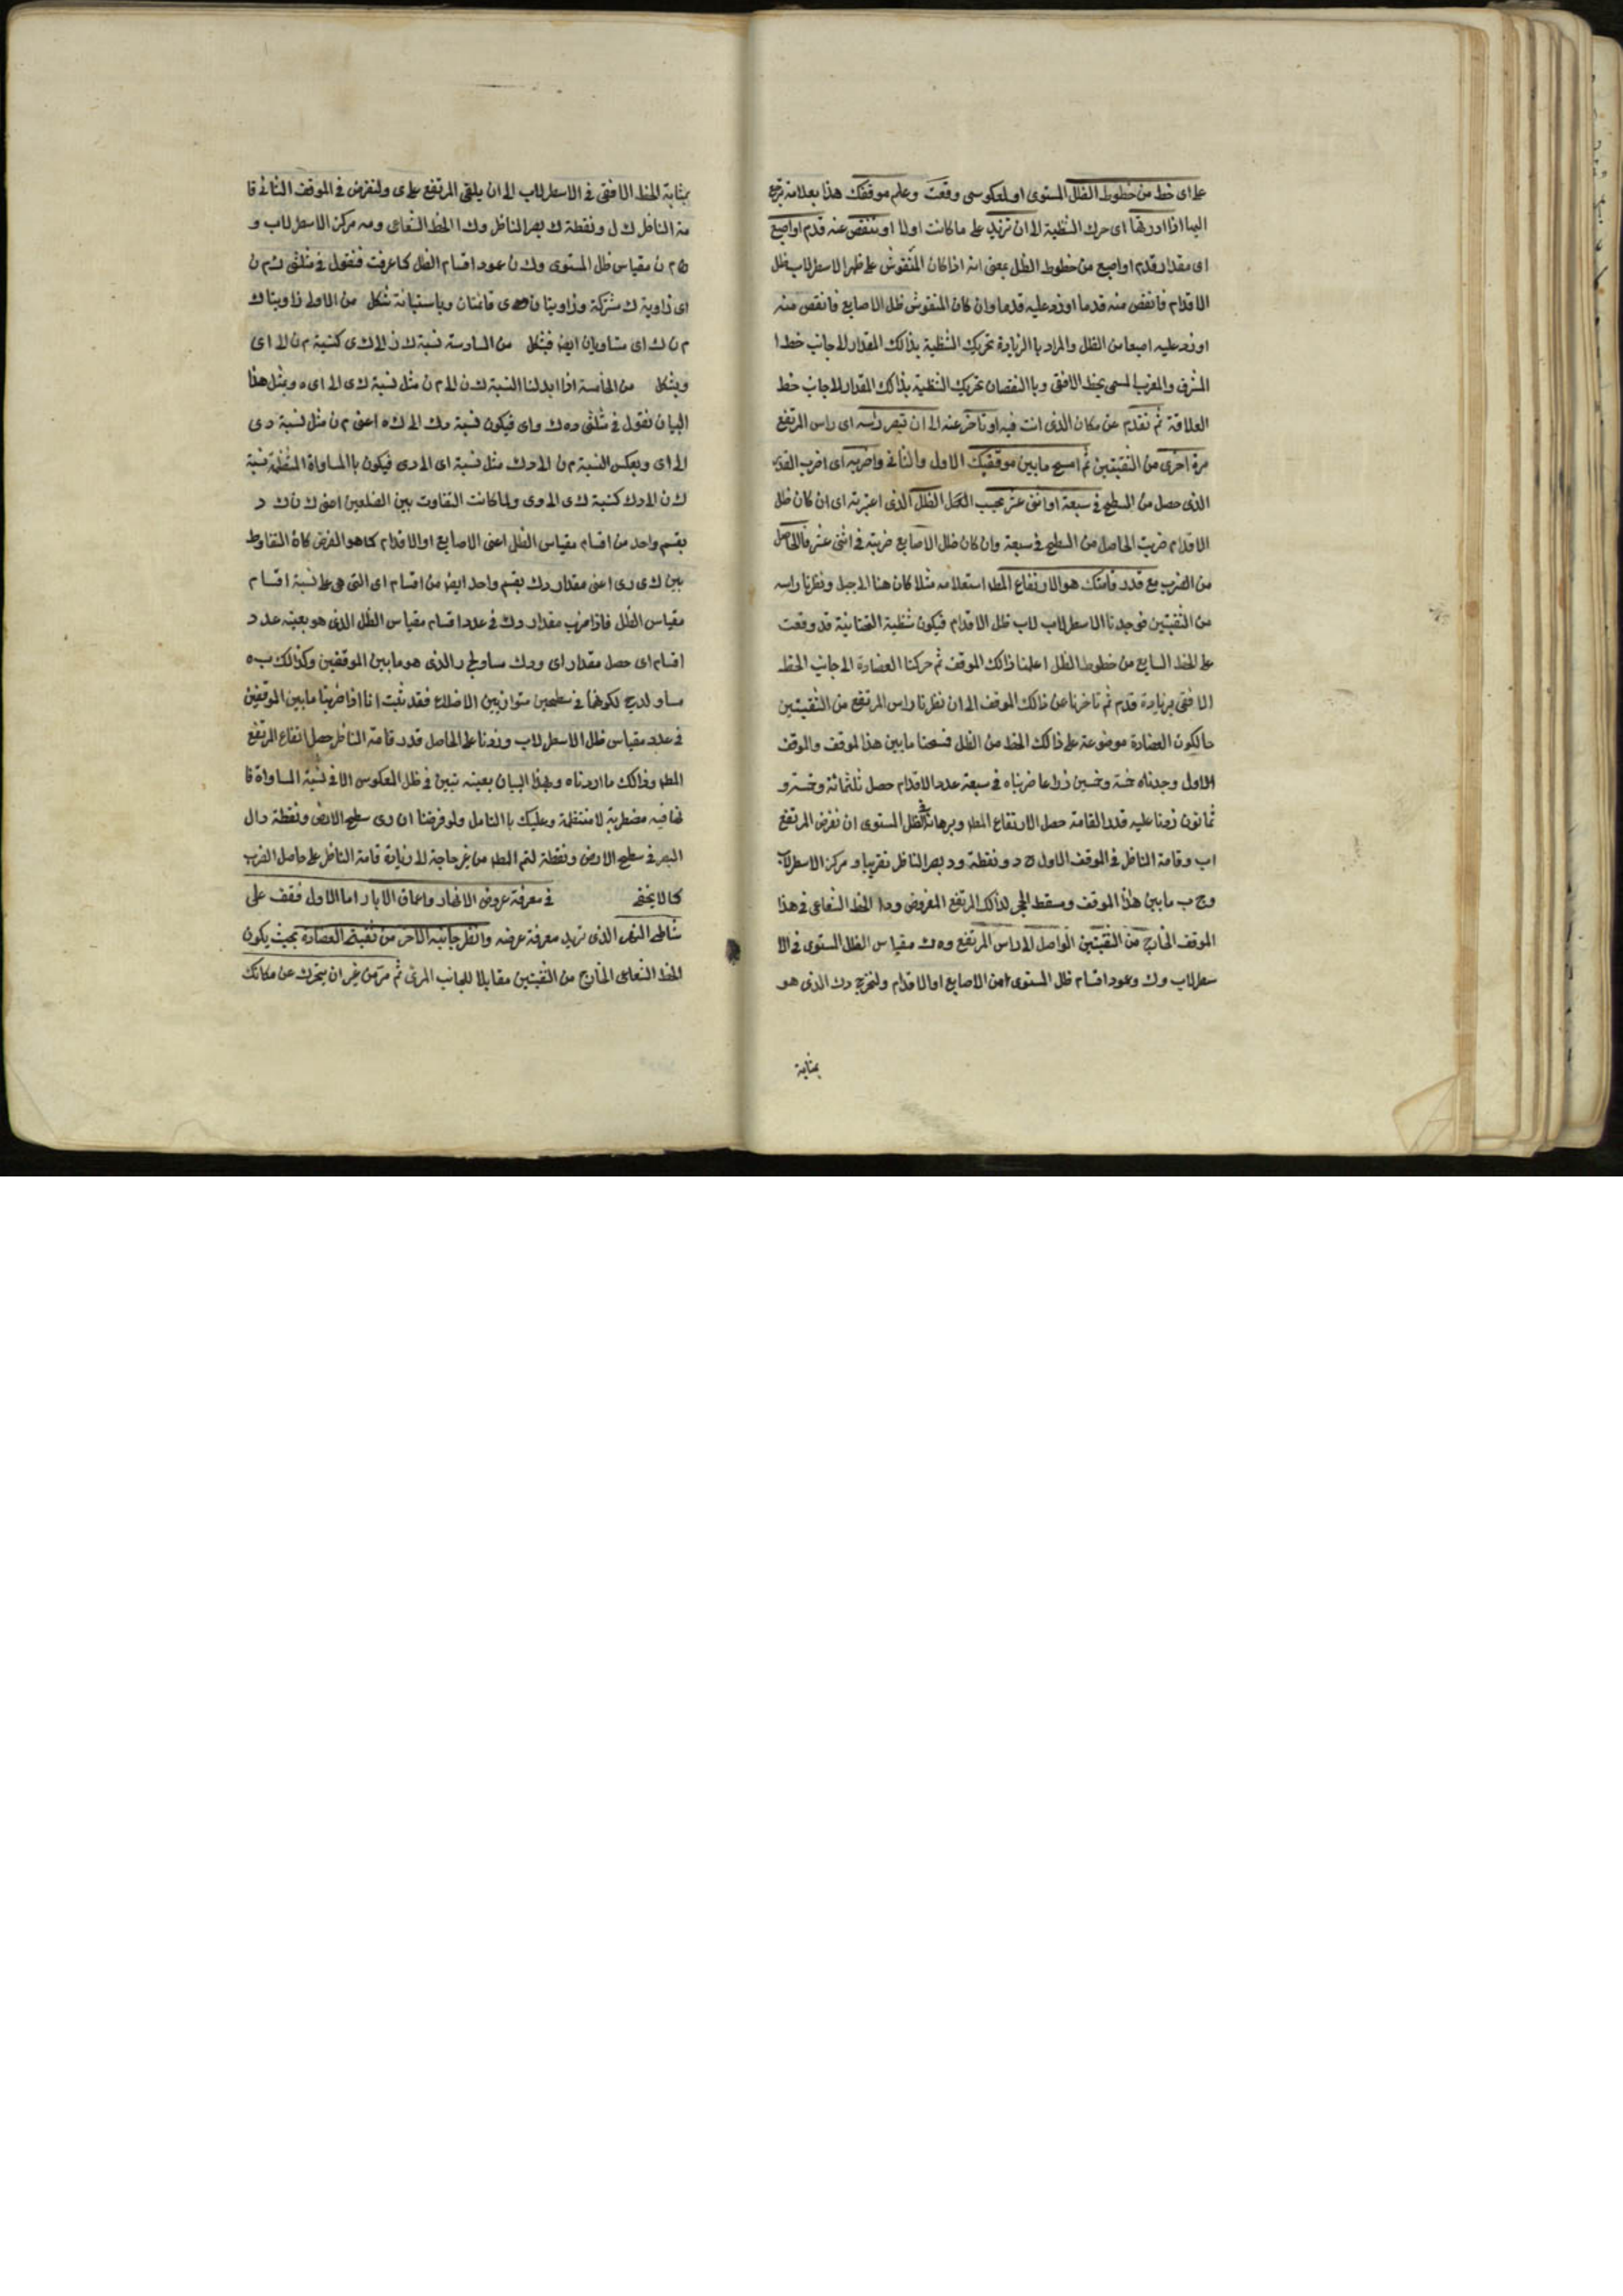 على اى خط من خطوط الظل المستوى او لمعكوسى وقعت وعلم موقفك هذا بعلامة ترجع
اليها اذا اردتها اى حرك الشظية الى ان تزيد على ما كانت اولا او تنقص عنه قدم او اصبع
اى مقدار قدم او اصبع من خطوط الظل بمعنى انه اذا كان المنقوش على ظهر الاسطرلاب ظل
الاقدام فانقص منه قدما او زد عليه قدما وان كان المنقوش ظل الاصابع فانقص منه
او زد عليه اصبعا من الظل والمراد باالزيادة تحريك الشظية بذالك المقدار الى جانب خط ا
المشرق والمغرب المسمى بخط الافق وباالنقصان تحريك الشظية بذالك المقدار الى جانب خط
العلاقة ثم تقدم عن مكان الذى انت فيه او تاخر عنه الى ان تبصر راسه اى راس المرتفع
مرة اخرى من الثقبتين ثم امسح ما بين موقفيك الاول والثانى واضربه اى اضرب القدر
الذى حصل من المسطح فى سبعة او اثنى عشر بحسب الظل الذى اعتبرته اى ان كان ظل
الاقدام ضربت الحاصل من السطح فى سبعة وان كان ظل الاصابع ضربته فى اثنى عشر فالحاصل
من الضرب مع قدر قامتك هو الارتفاع المط استعلامه مثلا كان هنا الى جبل ونظرنا راسه
من الثقبتين فوجدنا الاسطرلاب لاب ظل الاقدام فيكون شظية التحتانية قد وقعت
على الخط السابع من خطوط الظل اعلمنا ذالك الموقف ثم حركنا العضادة الى جانب الخط
الافقى بزيادة قدم ثم تاخرنا عن ذالك الموقف الى ان نظرنا راس المرتفع من الثقبتين
حالكون العضادة موضوعة على ذالك الخط من الظل فمسحنا ما بين هذا لموقف والموقف
الاول وجدناه خمسة وخمسين ذراعا ضربناه فى سبعة عدد الاقدام حصل ثلثمائة وخمسة و
ثمانون زدنا عليه قدر القامة حصل الارتفاع المط وبرهانه فى الظل المستوى ان نفرض المرتفع
اب وقامة الناظر فى الموقف الاول ح د ونقطة د بصر الناظر تقريبا و مركز الاسطرلاب
وح ب ما بين هذا الموقف ومسقط الحجر لذالك المرتفع المفروض ود ا الخط الشعاعى فى هذا
الموقف الخارج من الثقبتين الواصل الى راس المرتفع وه ك مقياس الظل المستوى فى الا
سطرلاب وك وعود اقسام ظل المستوى امن الاصابع او الاقدام ولنخرج دك الذى هو
بمثابة
بمثابة الخط الافقى فى الاسطرلاب الى ان يلقى المرتفع على ى ولنفرض فى الموقف الثانى قا
مة الناظر ك ل ونقطة ك بصر الناظر وك ا الخط الشعاعى ومه مركز الاسطرلاب و
م ن مقياس ظل المستوى وك ن عمود اقسام الظل كما عرفت فنقول فى مثلثى ك م ن
اى زاوية ك مشتركة وزاويتا ن ى قائمتان وباستبانة شكل من الاولى زاويتا ك
م ن ك اى متساويان ايض فبشكل من السادسة نسبة ك ن الى ك ى كنسبة م ن الى اى
وبشكل من الخامسة اذا ابدلنا النسبة ك ن الى م ن مثل نسبة ك ى الى اى ه وبمثل هذا
البيان نقول فى مثلثى ده ك واى فيكون نسبة دك الى ك ه اعنى م ن مثل نسبة دى
الى اى وبعكس النسبة م ن الى دك مثل نسبة اى الى دى فيكون باالمساواة المنتظمة نسبة
ك ن الى دك كنسبة ك ى الى دى ولما كانت التفاوت بين الضلعين اعنى ك ن ك د
بقسم واحد من اقسام مقياس الظل اعنى الاصابع او الاقدام كما هو الفرض كان التفاوط
بين ك ى دى اعنى مقدار دك بقسم واحد ايض من اقسام اى التى هى على نسبة اقسام
مقياس الظل فاذا ضرب مقدار دك فى عدد اقسام مقياس الظل الذى هو بعينه عدد
اقسام اى حصل مقدار اى ودك مساو لح ر الذى هو ما بين الموقفين وكذالك ب ه
مساو لدح لكونهما فى سطحين متوازيين الاضلاع فقد ثبت انا اذا ضربنا ما بين الموقفين
فى عدد مقياس ظل الاسطرلاب وزدنا على الحاصل قدر قامة الناظر حصل ارتفاع المرتفع
المط وذالك ما اردناه وبهذا البيان بعينه تبين فى ظل المعكوس الا فى نسبة المساواة فا
نها فيه مضطربة لا منتظمة وعليك باالتامل ولو فرضنا ان دى سطح الارض ونقطة د ال
البصر فى سطح الارض ونقطة لتم المط من غير حاجة الى زيادة قامة الناظر على حاصل الضرب
كما لا يخفى فى معرفة عروض الانهار واعماق الابار اما الاول فقف على
شاطى النهر الذى تريد معرفة عرضه وانظر جانبه الاخر من ثقبتى العضادة بحيث يكون
الخط الشعاعى الخارج من الثقبتين مقابلا للجانب المرئى ثم مر من غير ان يتحرك عن مكانك